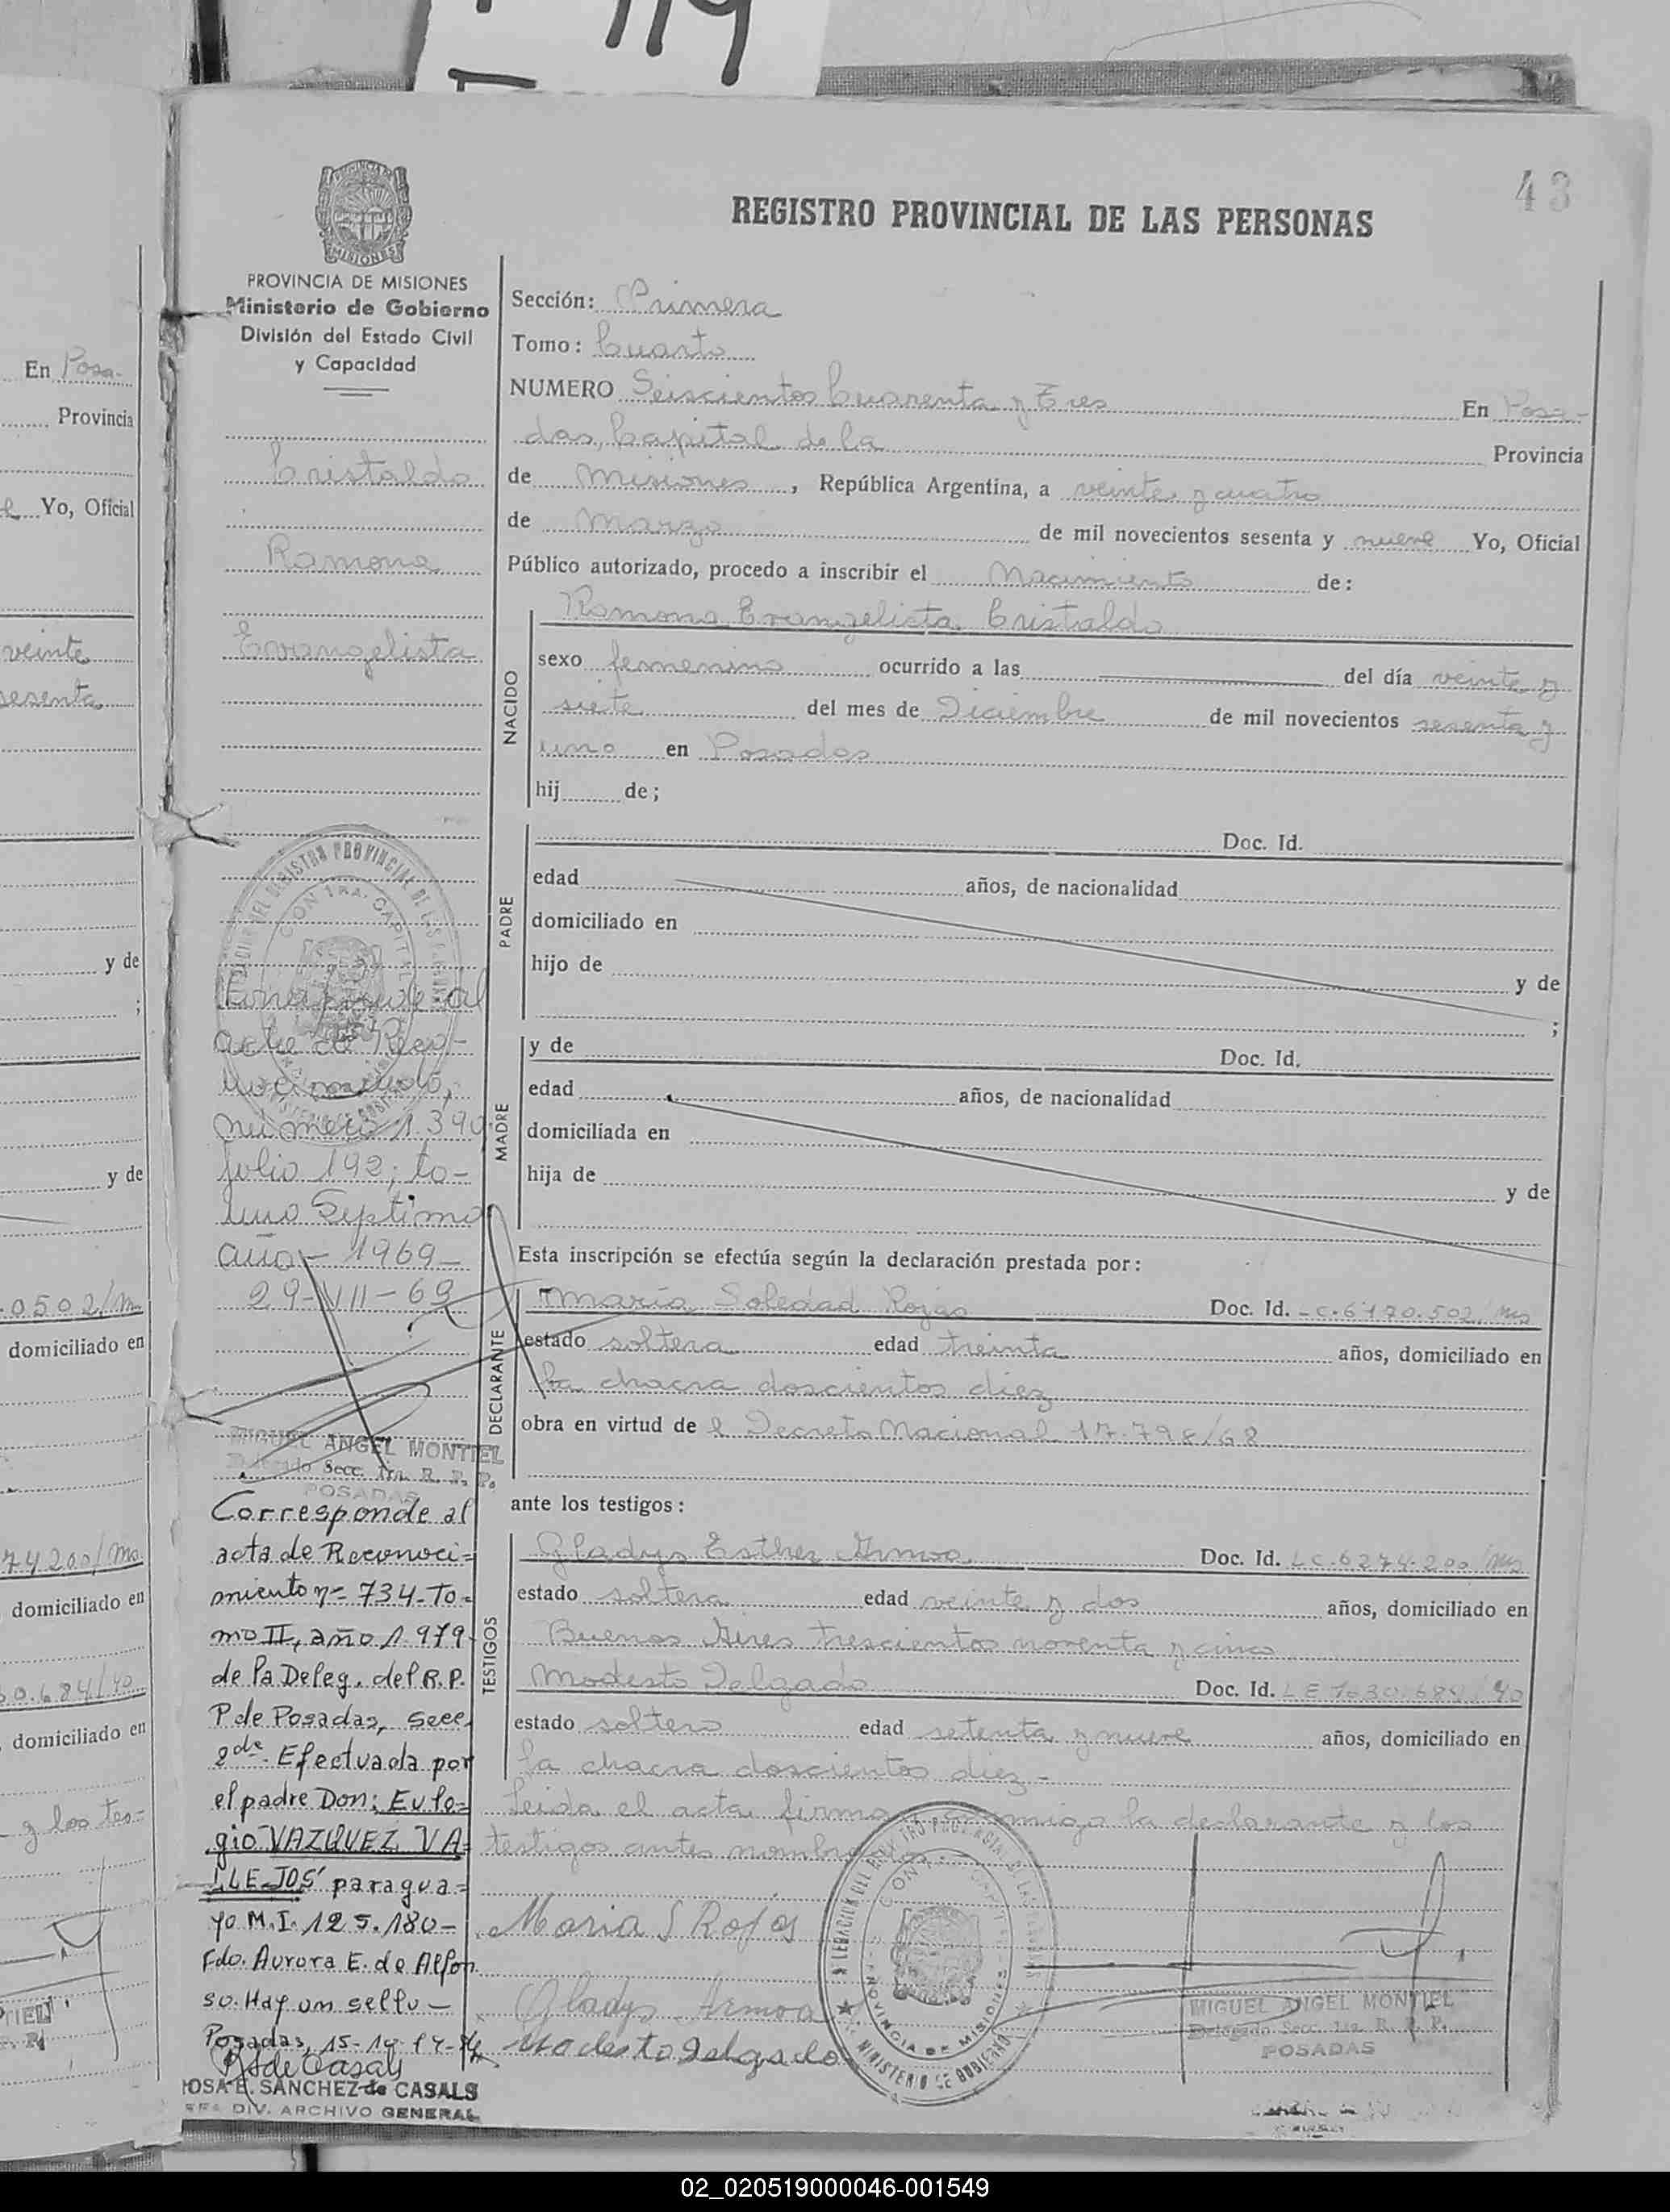 43
REGISTRO PROVINCIAL DE LAS PERSONAS
PROVINCIA DE MISIONES
Ministerio de Gobierno
División del Estado Civil
y Capacidad
Cristaldo
Ramona
Evangelista
Sección: Primera
Tomo: Cuarto
NUMERO Seiscientos Cuarenta y Tres En Posa-
das, Capital de la Provincia
de Misiones, República Argentina, a veinte y cuatro
de Marzo de mil novecientos sesenta y nueve Yo, Oficial
Público autorizado, procedo a inscribir el Nacimiento de:
NACIDO
Ramona Evangelista Cristaldo
sexo femenino ocurrido a las del día veinte y
siete del mes de Diciembre de mil novecientos sesenta y
uno en Posadas
hij de;
PADRE
Doc. Id.
edad años, de nacionalidad
domiciliado en
hijo de y de
;
MADRE
y de Doc. Id.
edad años, de nacionalidad
domiciliada en
hija de y de
Esta inscripción se efectúa según la declaración prestada por:
DECLARANTE
María Soledad Rojas Doc. Id. -C.6170.502/Ms
estado soltera edad treinta años, domiciliado en
la chacra doscientos diez
obra en virtud de l Decreto Nacional 17.798/68
ante los testigos:
TESTIGOS
Gladys Esther Armoa Doc. Id. LC.6274.200/Ms
estado soltera edad veinte y dos años, domiciliado en
Buenos Aires trescientos noventa y cinco
Modesto Delgado Doc. Id. LE
estado soltero edad setenta y nueve años, domiciliado en
la chacra doscientos diez-
Leida el acta firman conmigo la declarante y los
testigos antes nombrados
Maria S Rojas
Gladys Armoa
Modesto Delgado
MIGUEL ANGEL MONTIEL
Delegado Secc. 1ra. R. P. P.
POSADAS
Corresponde al
acta de Reco-
nocimiento,
número 1.390
folio 192; to-
mo Septimo
año - 1969-
29-VII-69
MIGUEL ANGEL MONTIEL
Delegado Secc. 1ra. R. P. P.
POSADAS
Corresponde al
acta de Reconoci=
miento nº 734-To=
mo II, año 1.979
de la Deleg. del R.P.
P de Posadas, Secc.
2da. Efectuada por
el padre Don: Eulo=
gio VAZQUEZ VA=
LLEJOS paragua=
yo M.I. 125.180-
Fdo. Aurora E. de Alfon
so. Hay un sello-
Posadas, 15-
ROSA E. SANCHEZ de CASALS
DIV. ARCHIVO GENERAL
En Posa-
Provincia
Yo, Oficial
veinte
sesenta
y de
;
y de
0502/Ms
domiciliado en
74200/Ms
domiciliado en
domiciliado en
y los tes-
02_020519000046-001549